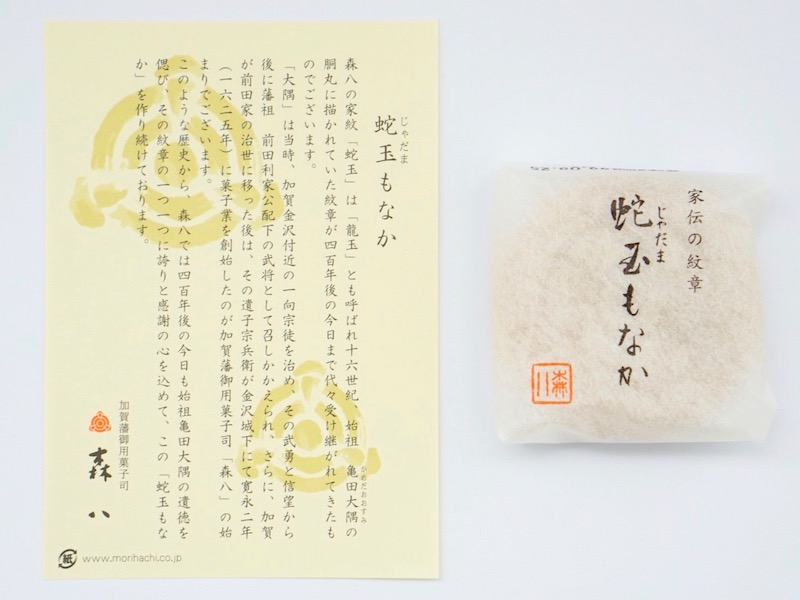 じゃだま
蛇玉もなか
森八の家紋「蛇玉」は「龍玉」とも呼ばれ十六世紀、始祖 亀田大隅の
かめだおおすみ
胴丸に描かれていた紋章が四百年後の今日まで代々受け継がれてきたも
のでございます。
「大隅」は当時、加賀金沢付近の一向宗徒を治め、その武勇と信望から
後に藩祖 前田利家公配下の武将として召しかかえられ、さらに、加賀
が前田家の治世に移った後は、その遺子宗兵衛が金沢城下にて寛永二年
(一六二五年)に菓子業を創始したのが加賀藩御用菓子司「森八」の始
まりでございます。
このような歴史から、森八では四百年後の今日も始祖亀田大隅の遺徳を
偲び、その紋章の一つ一つに誇りと感謝の心を込めて、この「蛇玉もな
か」を作り続けております。
加賀藩御用菓子司
森八
紙
www.morihachi.co.jp
家伝の紋章
じゃだま
蛇玉もなか
森八